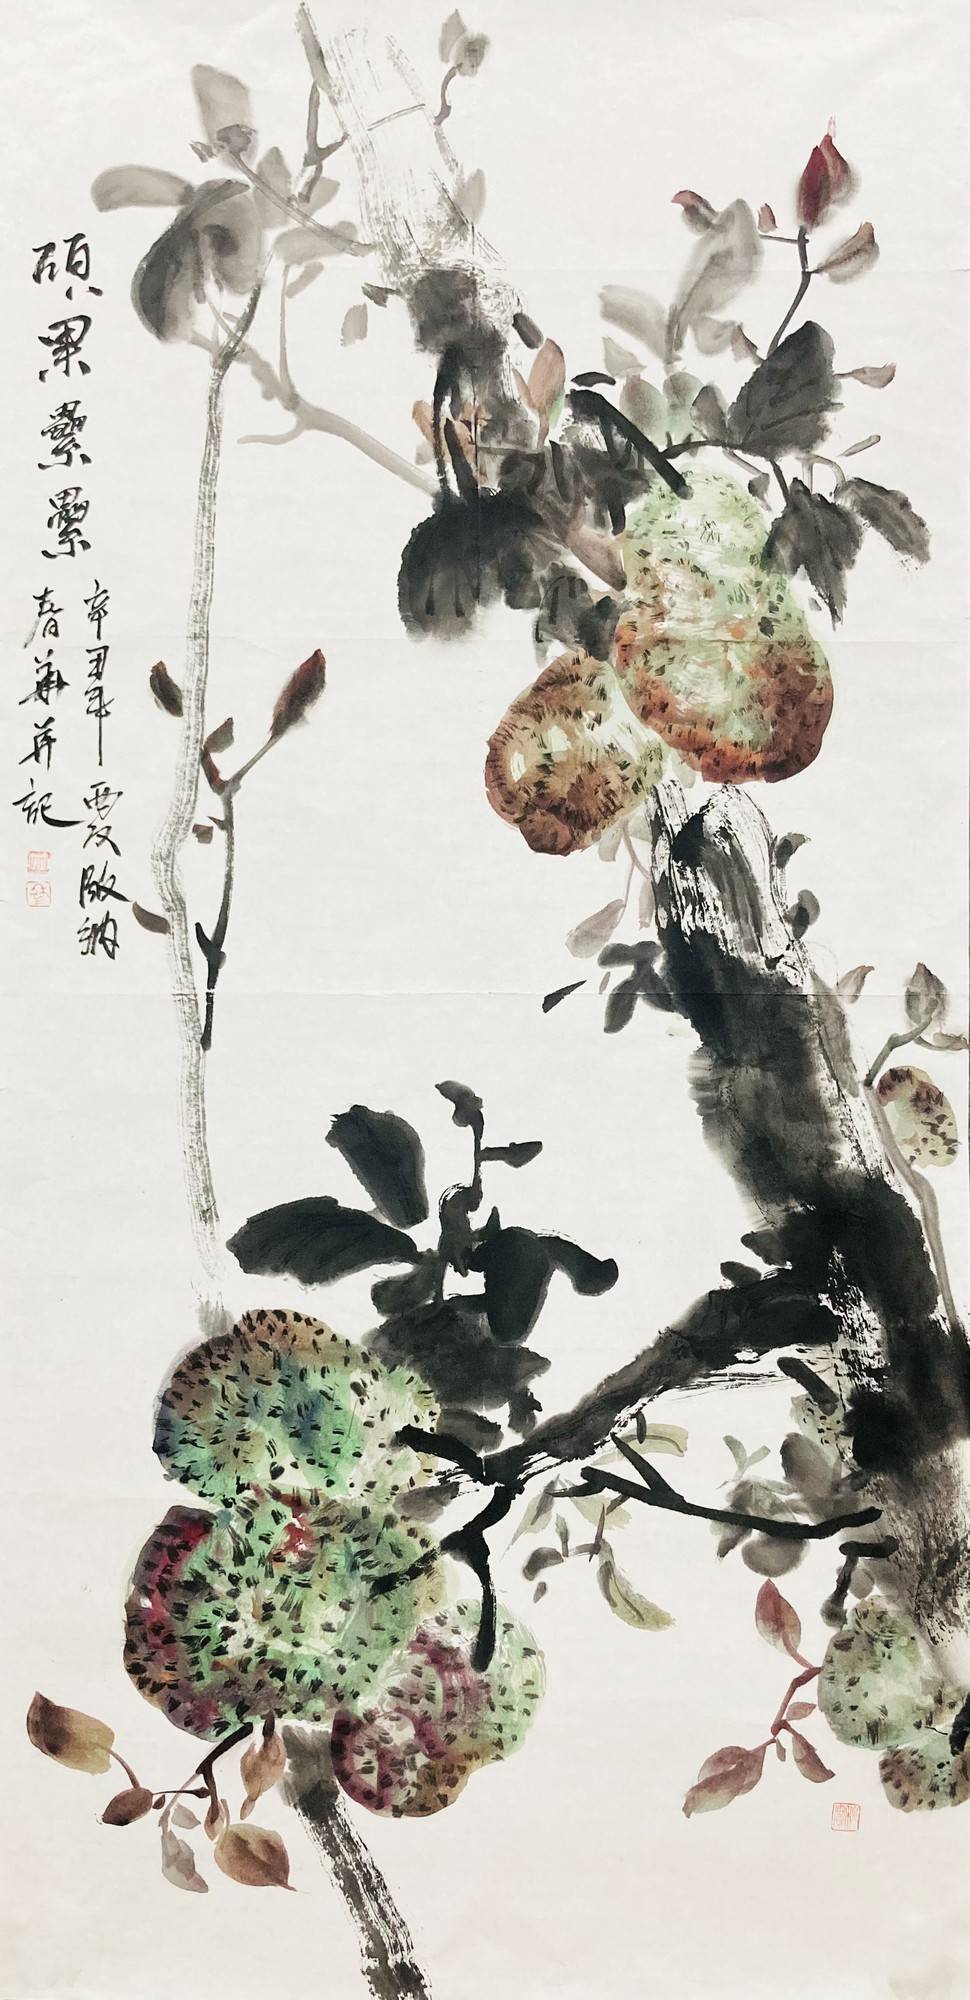 硕果纍纍
辛丑年西双版纳
春華并记